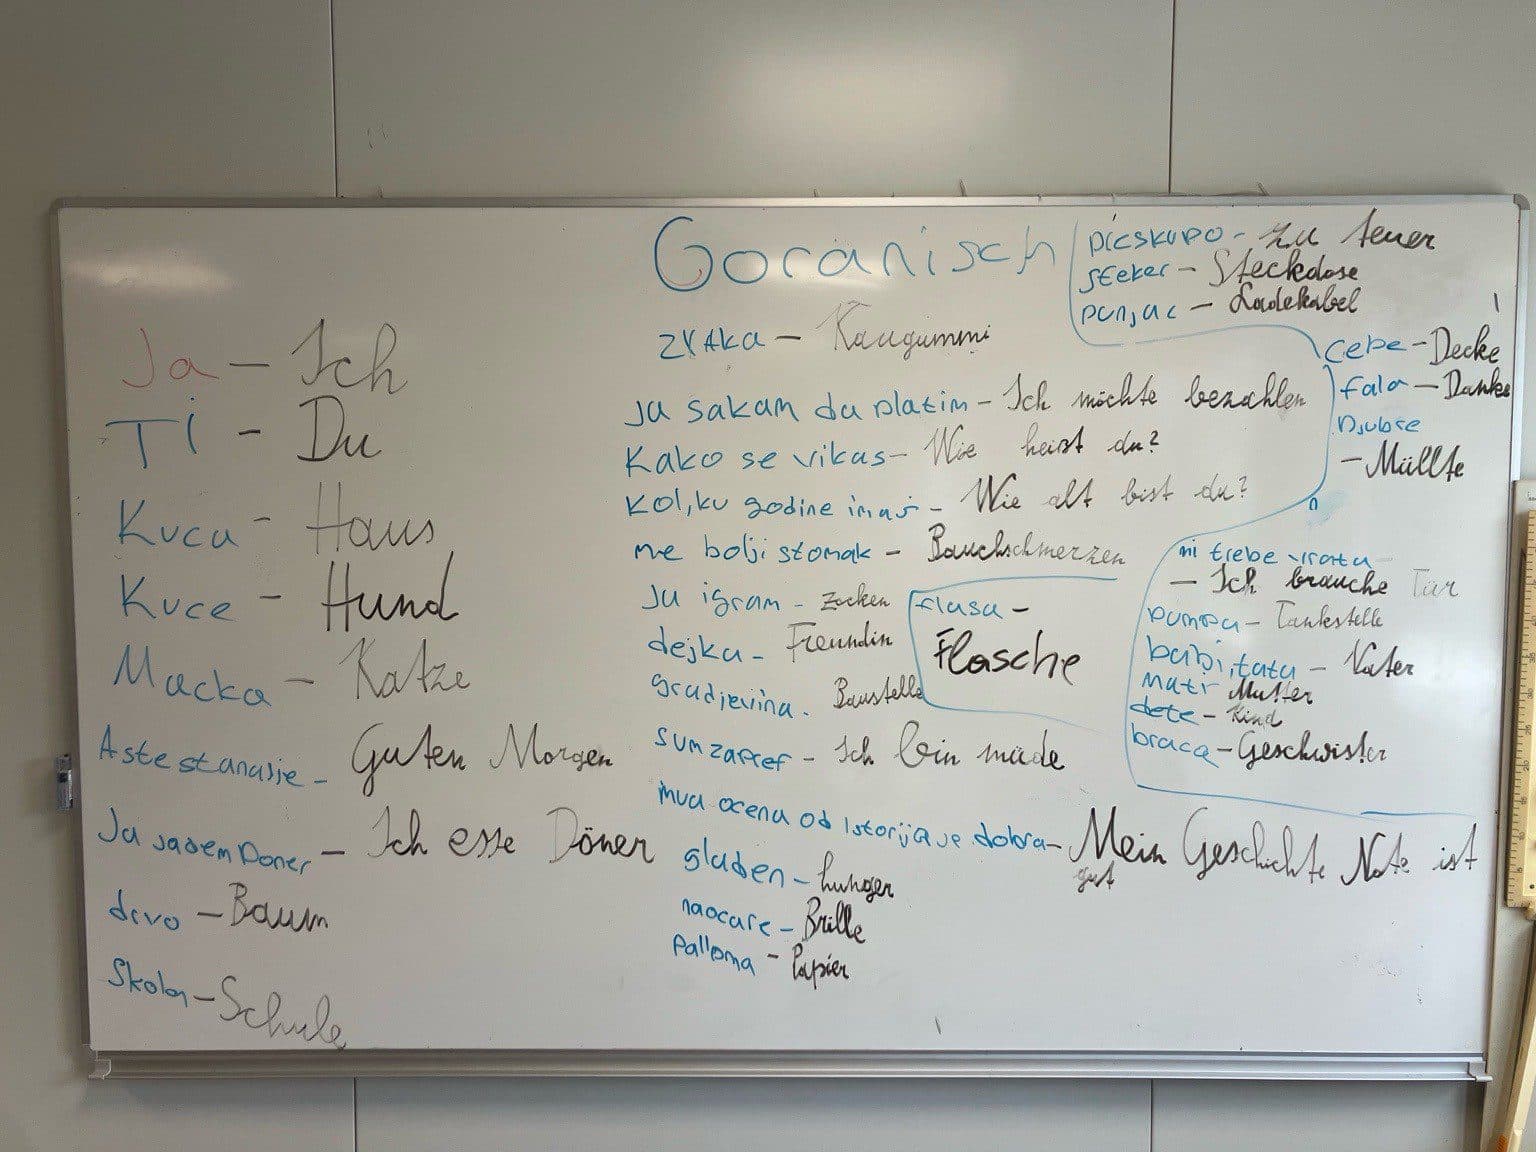 Goranisch
Ja - Ich
Ti - Du
Kuca - Haus
Kuce - Hund
Macka - Katze
Aste stanasje - Guten Morgen
Ja jadem Doner - Ich esse Döner
drvo - Baum
Skola - Schule
zvaka - Kaugummi
ja sakam da platim - Ich möchte bezahlen
Kako se vikas - Wie heist du?
Kolku godine imas - Wie alt bist du?
me bolji stomak - Bauchschmerzen
Ja igram - zocken
dejka - Freundin
gradjevina - Baustelle
sum zaftef - Ich bin müde
mua ocena od istorija je dobra - Mein Geschichte Note ist
gut
gladen - hunger
naocare - Brille
Palloma - Papier
flasa -
Flasche
preskupo - zu teuer
steker - Steckdose
punjac - Ladekabel
Cebe - Decke
fala - Danke
Djubre
- Müllte
mi trebe vrata
- Ich brauche Tür
pumpa - Tankstelle
babi, tata - Vater
mati Mutter
dete - Kind
braca - Geschwister